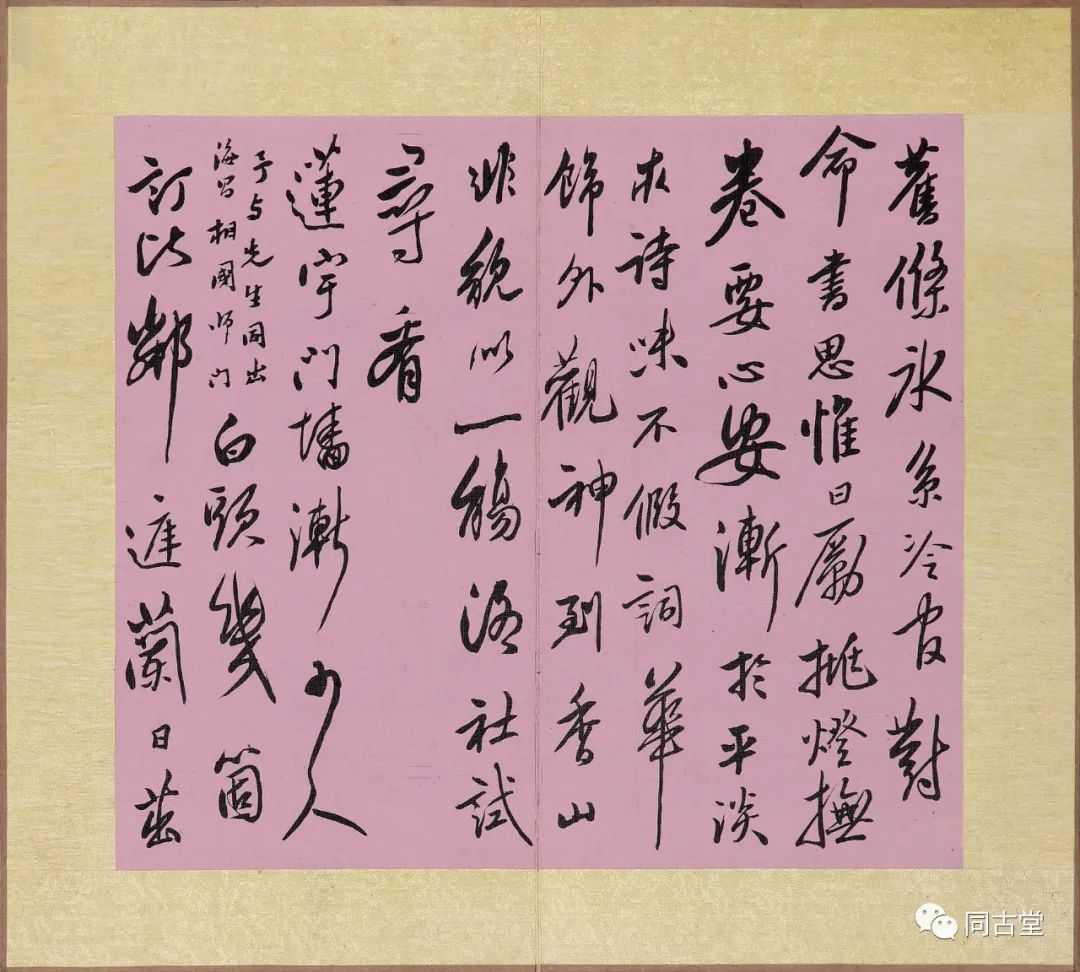 舊條冰系冷官對
命書思惟日勵挑燈撫
卷要心安漸於平淡
求詩味不假詞華
飾外觀神到香山
非貌似一觴洛社試
尋看
蓮宇門墻漸少人
予与先生同出
海昌相國师门
白頭幾箇
訂比鄰遮蘭日茁
同古堂